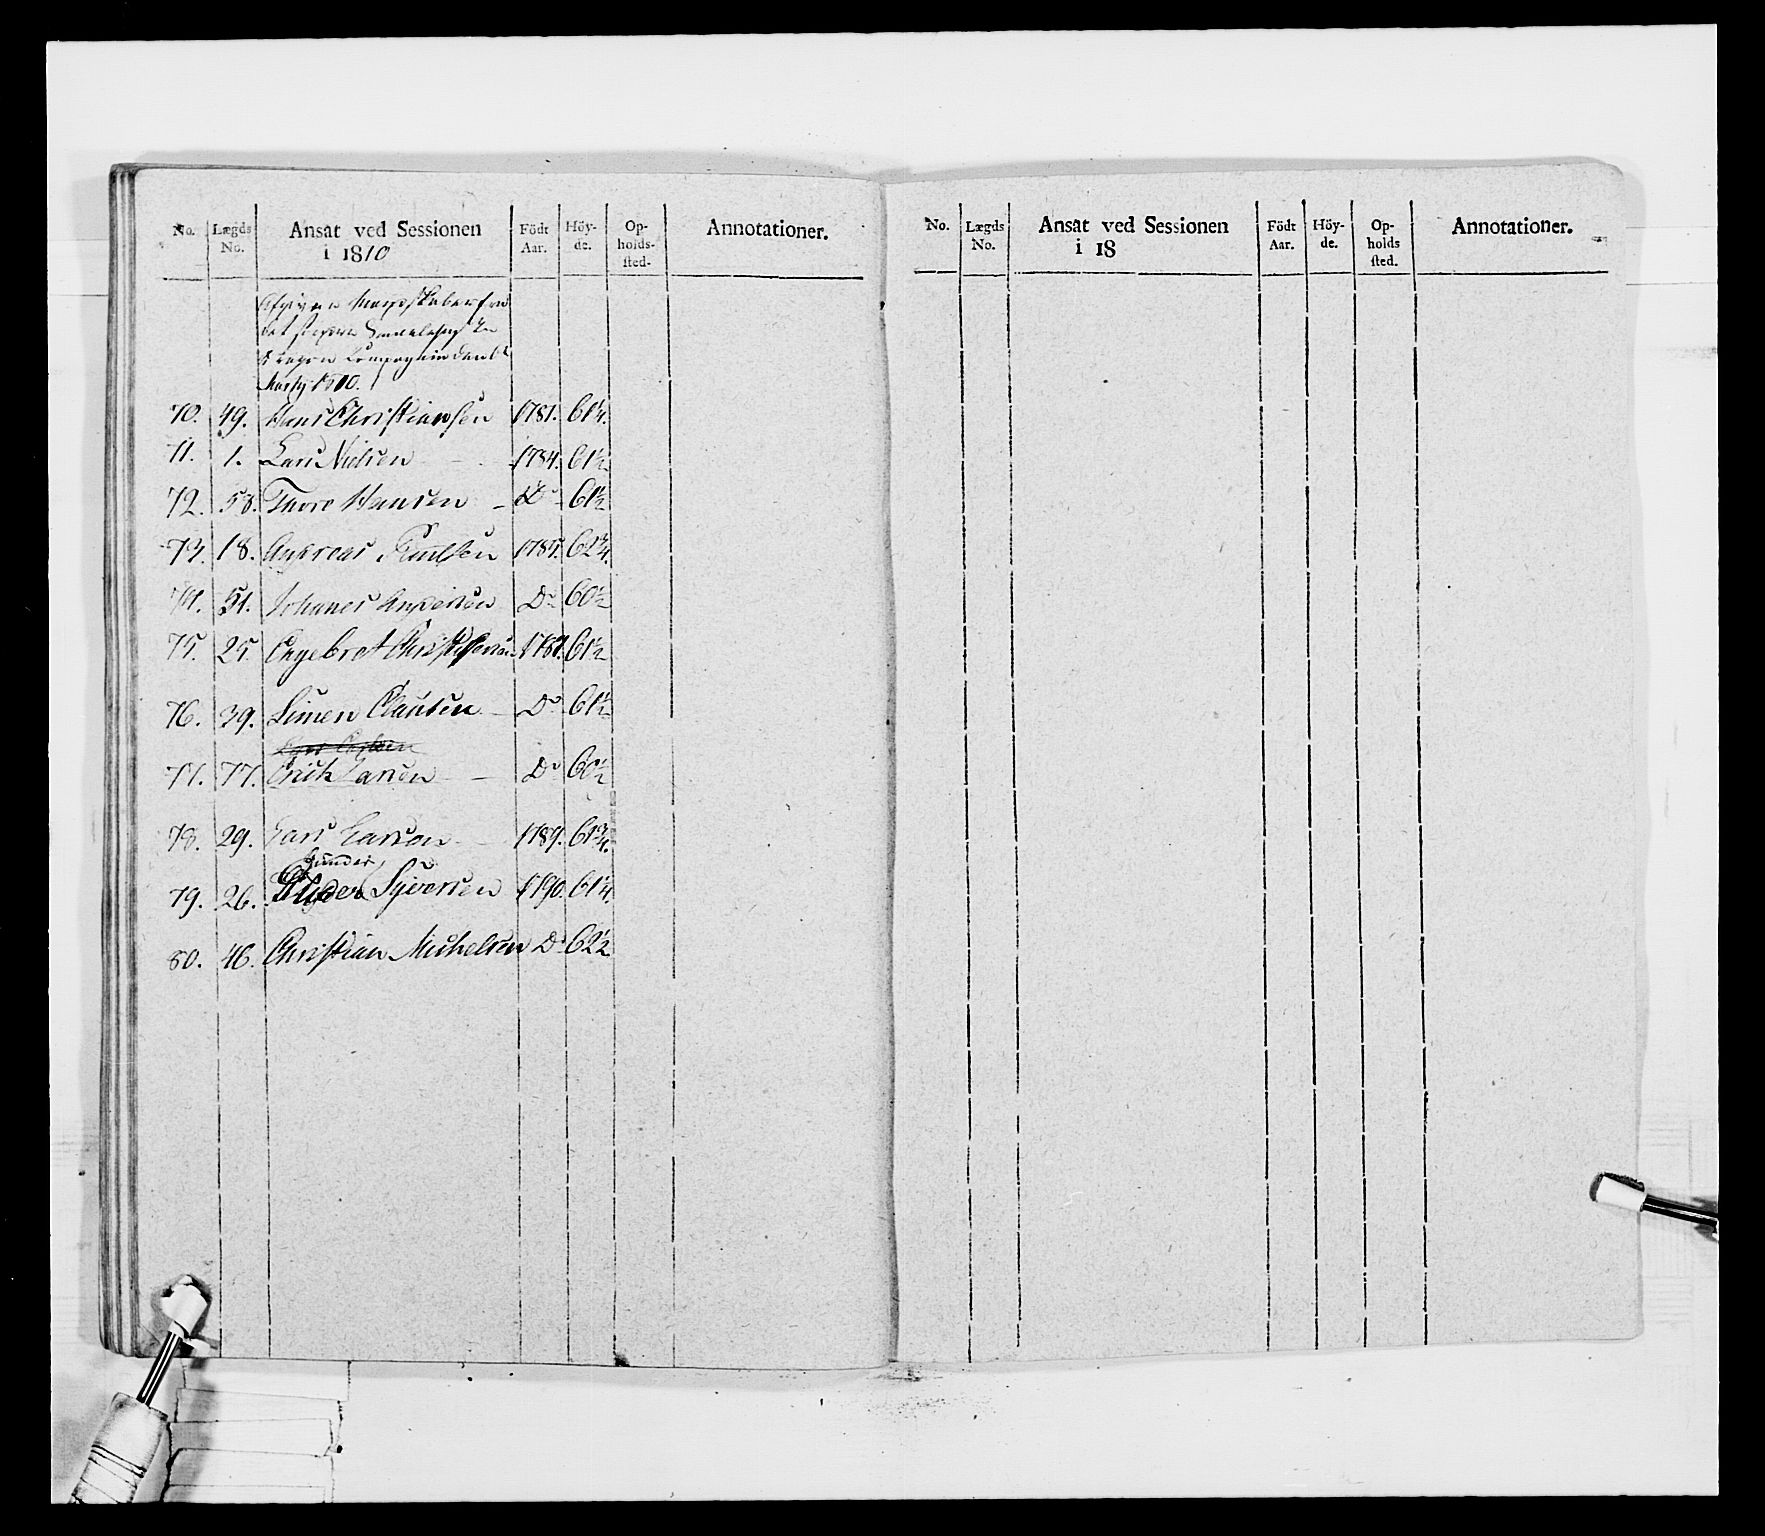 No. Lægds No. Ansat ved Sessionen i 1810 Födt Aar. Höy-de. Op-holds-sted. Annotationer.
Mandskaber fra
det
Compagnie den
1810.
70. 49. Hans Christiansen 1781. 61 1/4.
71. 1. Lars Nielsen - 1784. 61 1/2
72. 58. Thore Hansen - Do 61 1/2
73. 18. Andreas 1785. 62 3/4.
74. 51. Johanes Andersen Do 60 1/2
75. 25. Engebret Christophersen 1787. 61 1/2
76. 39. Simen Clausen - Do 61 1/2
77. 77. Erich Larsen - Do 60 1/2
78. 29. Lars Larsen - 1789. 61 3/4.
Gunder
79. 26. Syversen 1790. 61 1/4.
80. 46. Christian Michelsen Do 62 1/2
No. Lægds No. Ansat ved Sessionen i 18 Födt Aar. Höy-de. Op-holds sted. Annotationer.